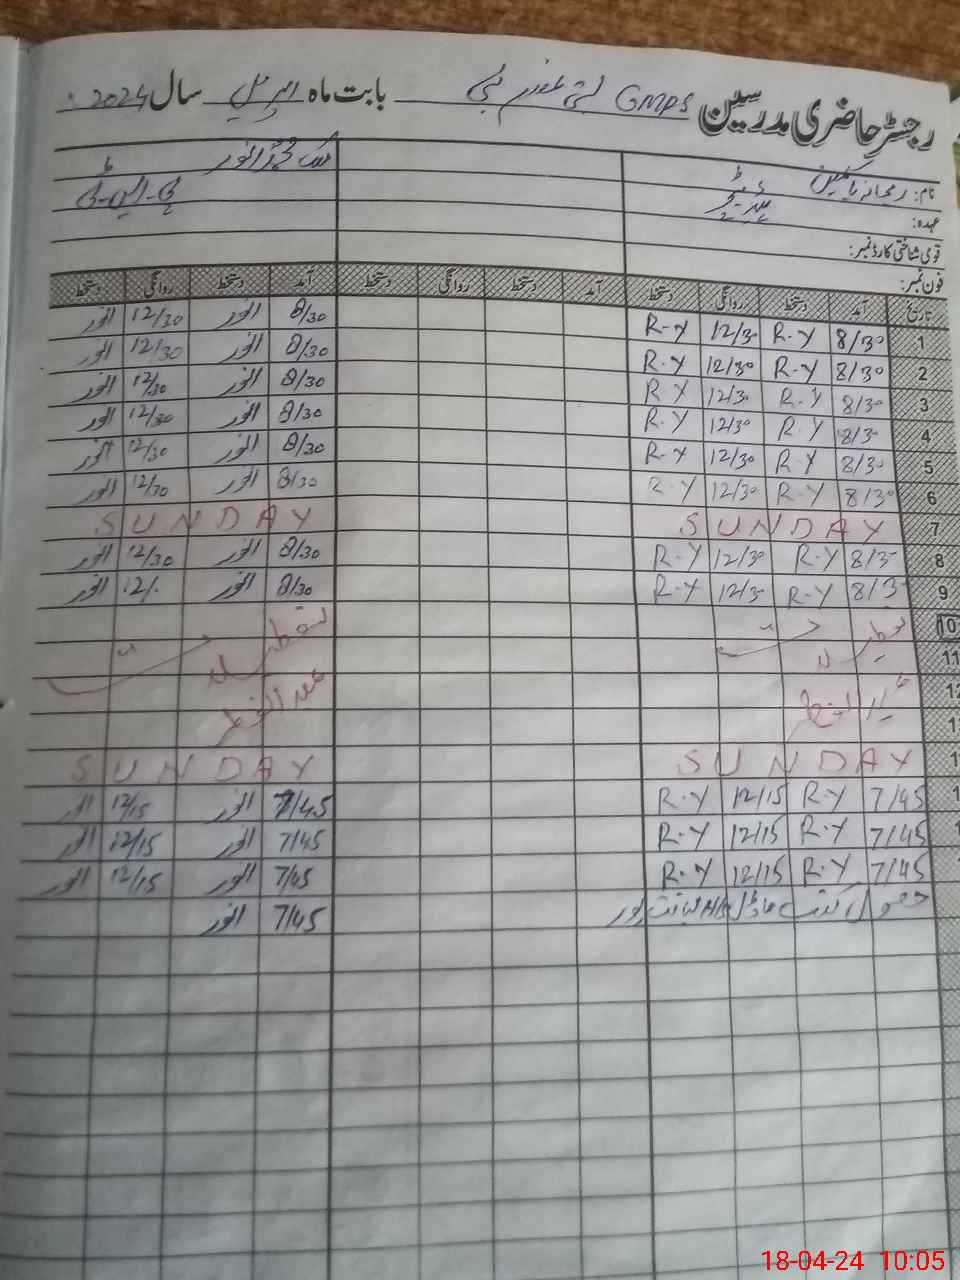 رجسٹر حاضری مدرسین GMPS بستی بابت ماہ اپریل سال 2024
نام: ریحانہ یاسمین ملک محمد انور
عہدہ: ہیڈ ٹیچر پی۔ایس۔ٹی
قومی شناختی کارڈ نمبر:
فون نمبر:
تاریخ آمد دستخط روانگی دستخط آمد دستخط روانگی دستخط آمد دستخط روانگی دستخط
1 8/30 R-Y 12/30 R-Y 8/30 انور 12/30 انور
2 8/30 R-Y 12/30 R-Y 8/30 انور 12/30 انور
3 8/30 R-Y 12/30 R-Y 8/30 انور 12/30 انور
4 8/30 R-Y 12/30 R-Y 8/30 انور 12/30 انور
5 8/30 R-Y 12/30 R-Y 8/30 انور 12/30 انور
6 8/30 R-Y 12/30 R-Y 8/30 انور 12/30 انور
7 SUNDAY SUNDAY
8 8/30 R-Y 12/30 R-Y 8/30 انور 12/30 انور
9 8/30 R-Y 12/30 R-Y 8/30 انور 12/. انور
10 تعطیلات تعطیلات
11
12 عید الفطر عید الفطر
SUNDAY SUNDAY
7/45 R-Y 12/15 R-Y 7/45 انور 12/15 انور
7/45 R-Y 12/15 R-Y 7/45 انور 12/15 انور
7/45 R-Y 12/15 R-Y 7/45 انور 12/15 انور
حصول کتب ماڈل لیاقت پور 7/45 انور
18-04-24 10:05